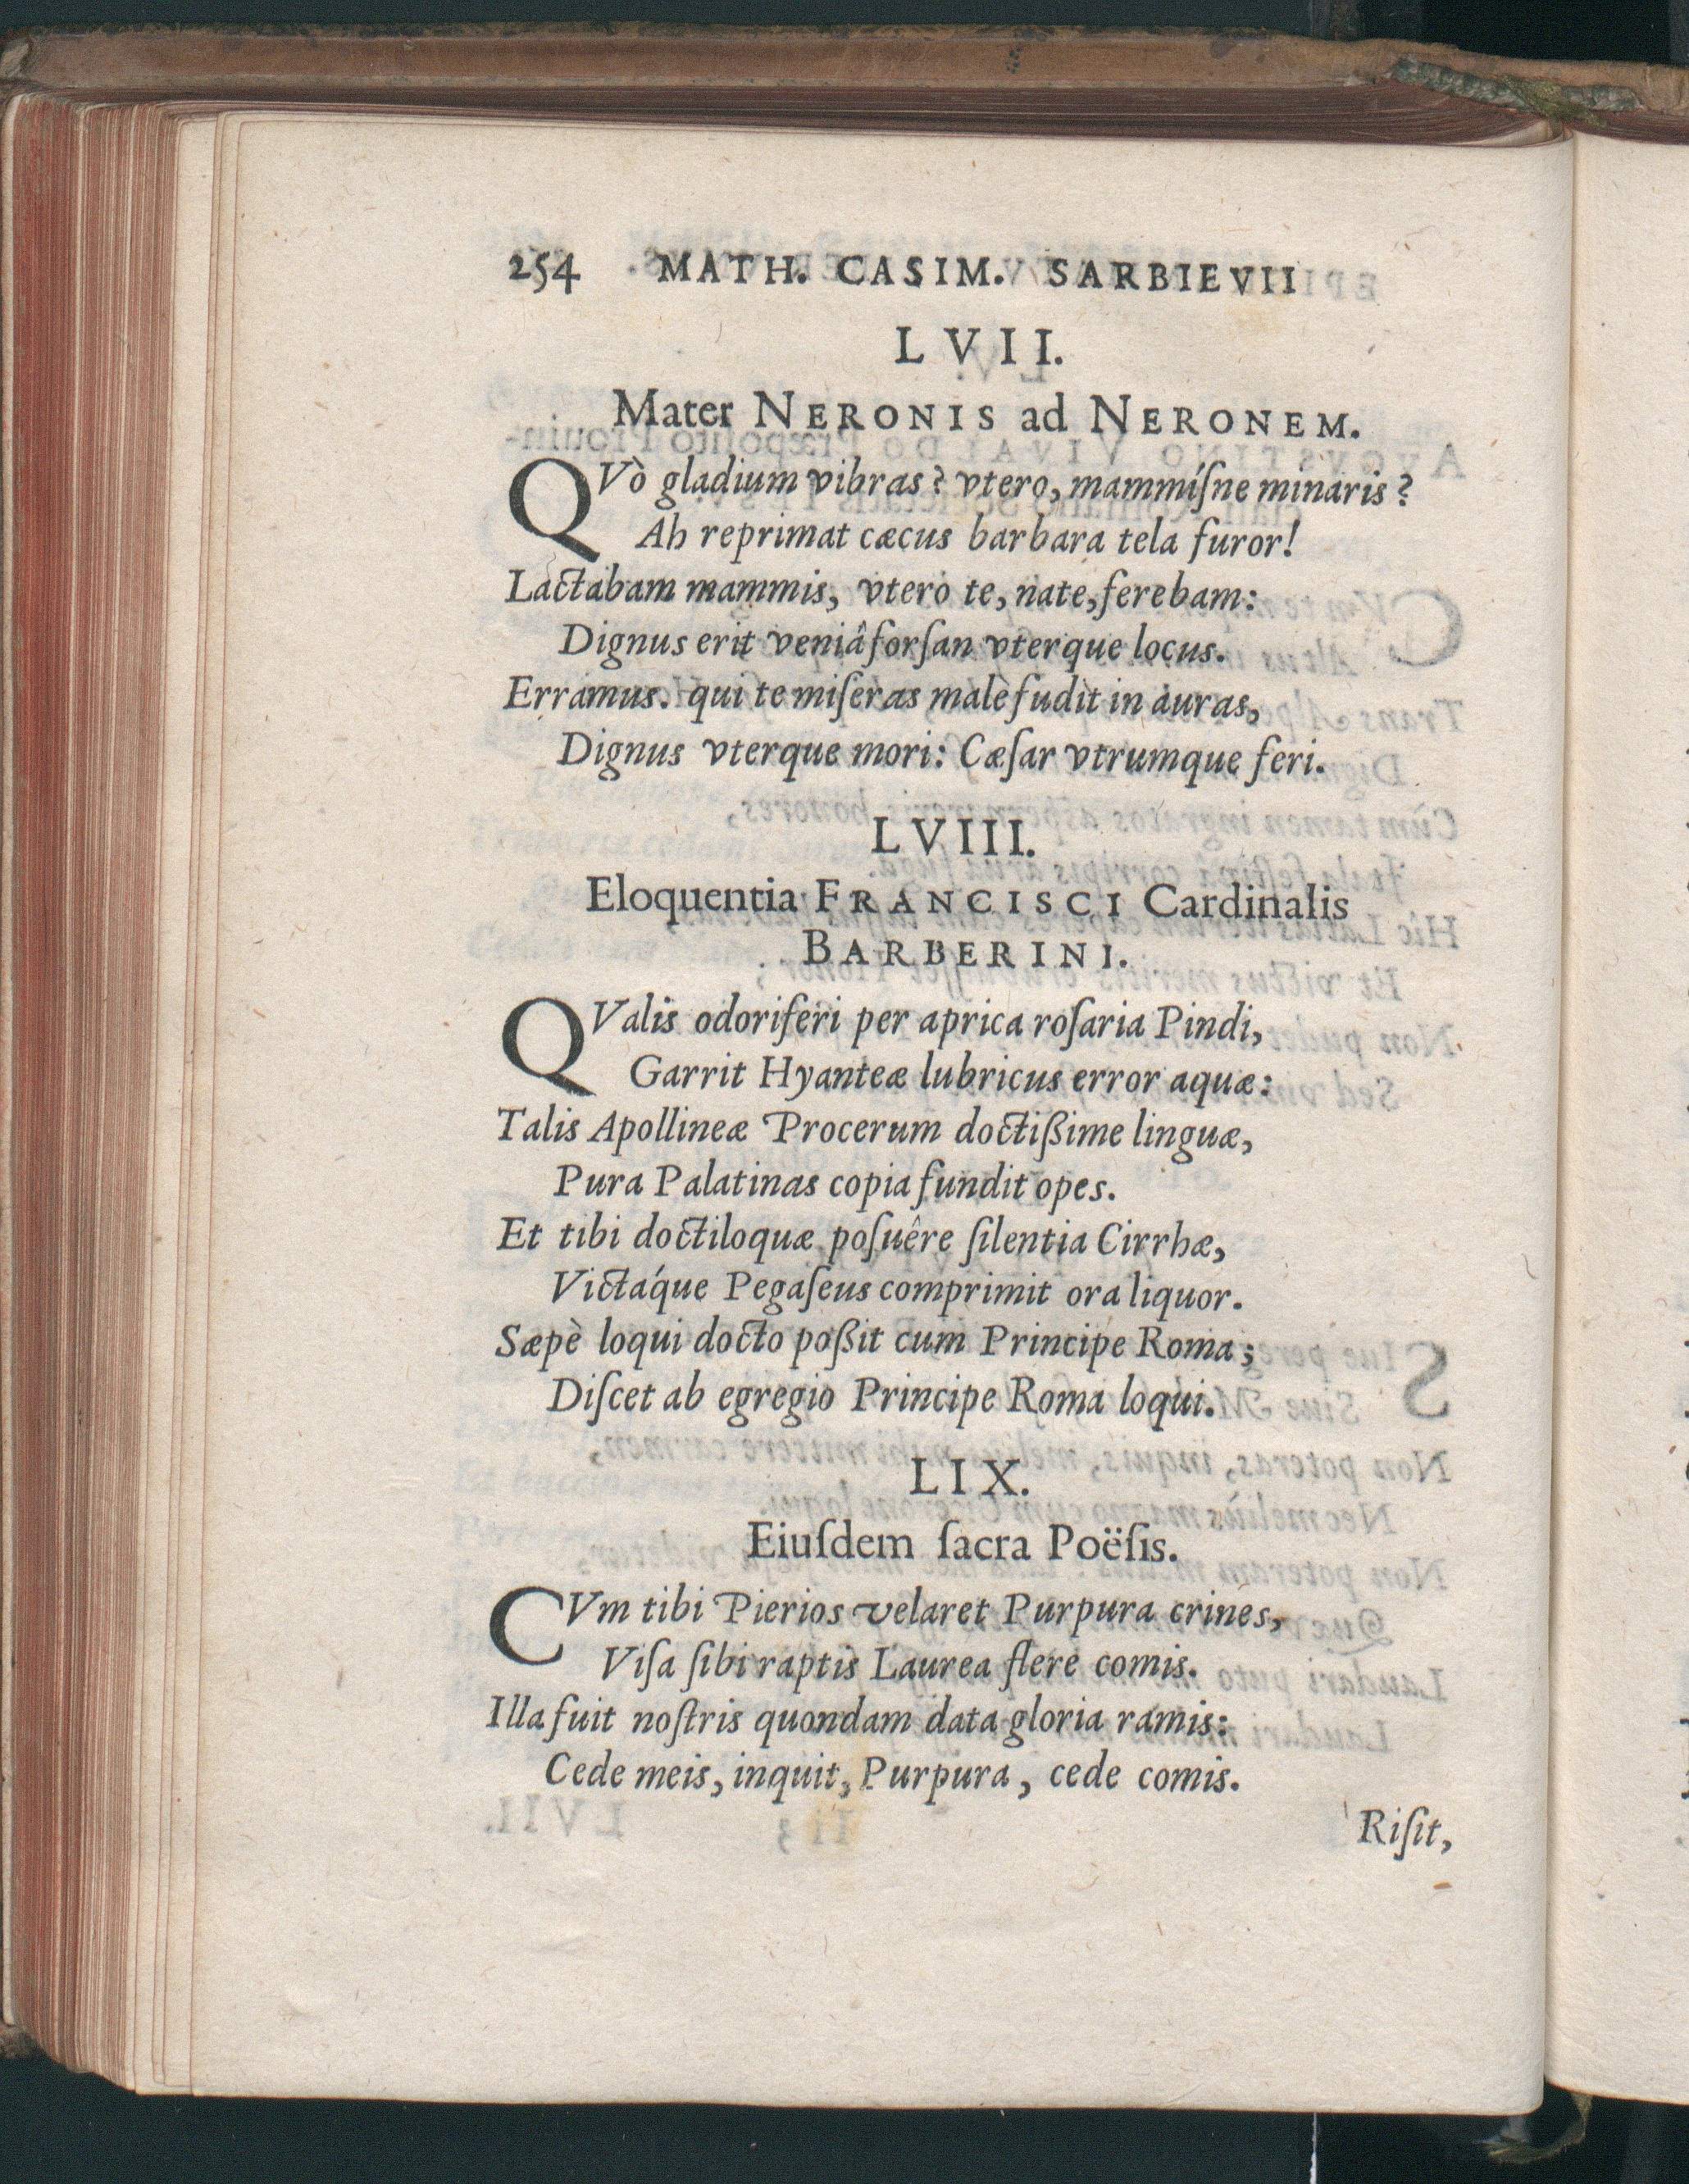 254 MATH. CASIM. SARBIEVII
LVII.
Mater NERONIS ad NERONEM.
QVò gladium vibras? vtero, mammíſne minaris?
Ah reprimat cæcus barbara tela furor!
Lactabam mammis, vtero te, nate, ferebam:
Dignus erit veniâ forſan vterque locus.
Erramus. qui te miſeras malè fudit in auras,
Dignus vterque mori: Cæſar vtrumque feri.
LVIII.
Eloquentia FRANCISCI Cardinalis
BARBERINI.
QValis odoriferi per aprica roſaria Pindi,
Garrit Hyanteæ lubricus error aquæ:
Talis Apollineæ Procerum doctißime linguæ,
Pura Palatinas copia fundit opes.
Et tibi doctiloquæ poſuêre ſilentia Cirrhæ,
Victáque Pegaſeus comprimit ora liquor.
Sæpè loqui docto poßit cum Principe Roma;
Diſcet ab egregio Principe Roma loqui.
LIX.
Eiuſdem ſacra Poëſis.
CVm tibi Pierios velaret Purpura crines,
Viſa ſibi raptis Laurea flere comis.
Illa fuit noſtris quondam data gloria ramis:
Cede meis, inquit, Purpura, cede comis.
Riſit,